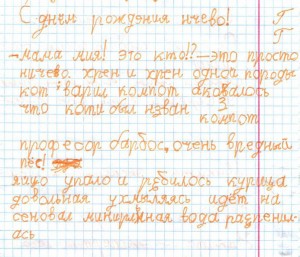 С днём рождения ничево!
Г
Г
-мама мия! это кто!?-это просто
ничево. хрен и хрен одной породы
кот варил компот аказалось
что коти был незван
З
компот
професор барбос, очень вредный
пёс!
яйцо упало и разбилось курица
довольная ухмыляясь идёт на
сеновал миниральная вода разпенил-
ась